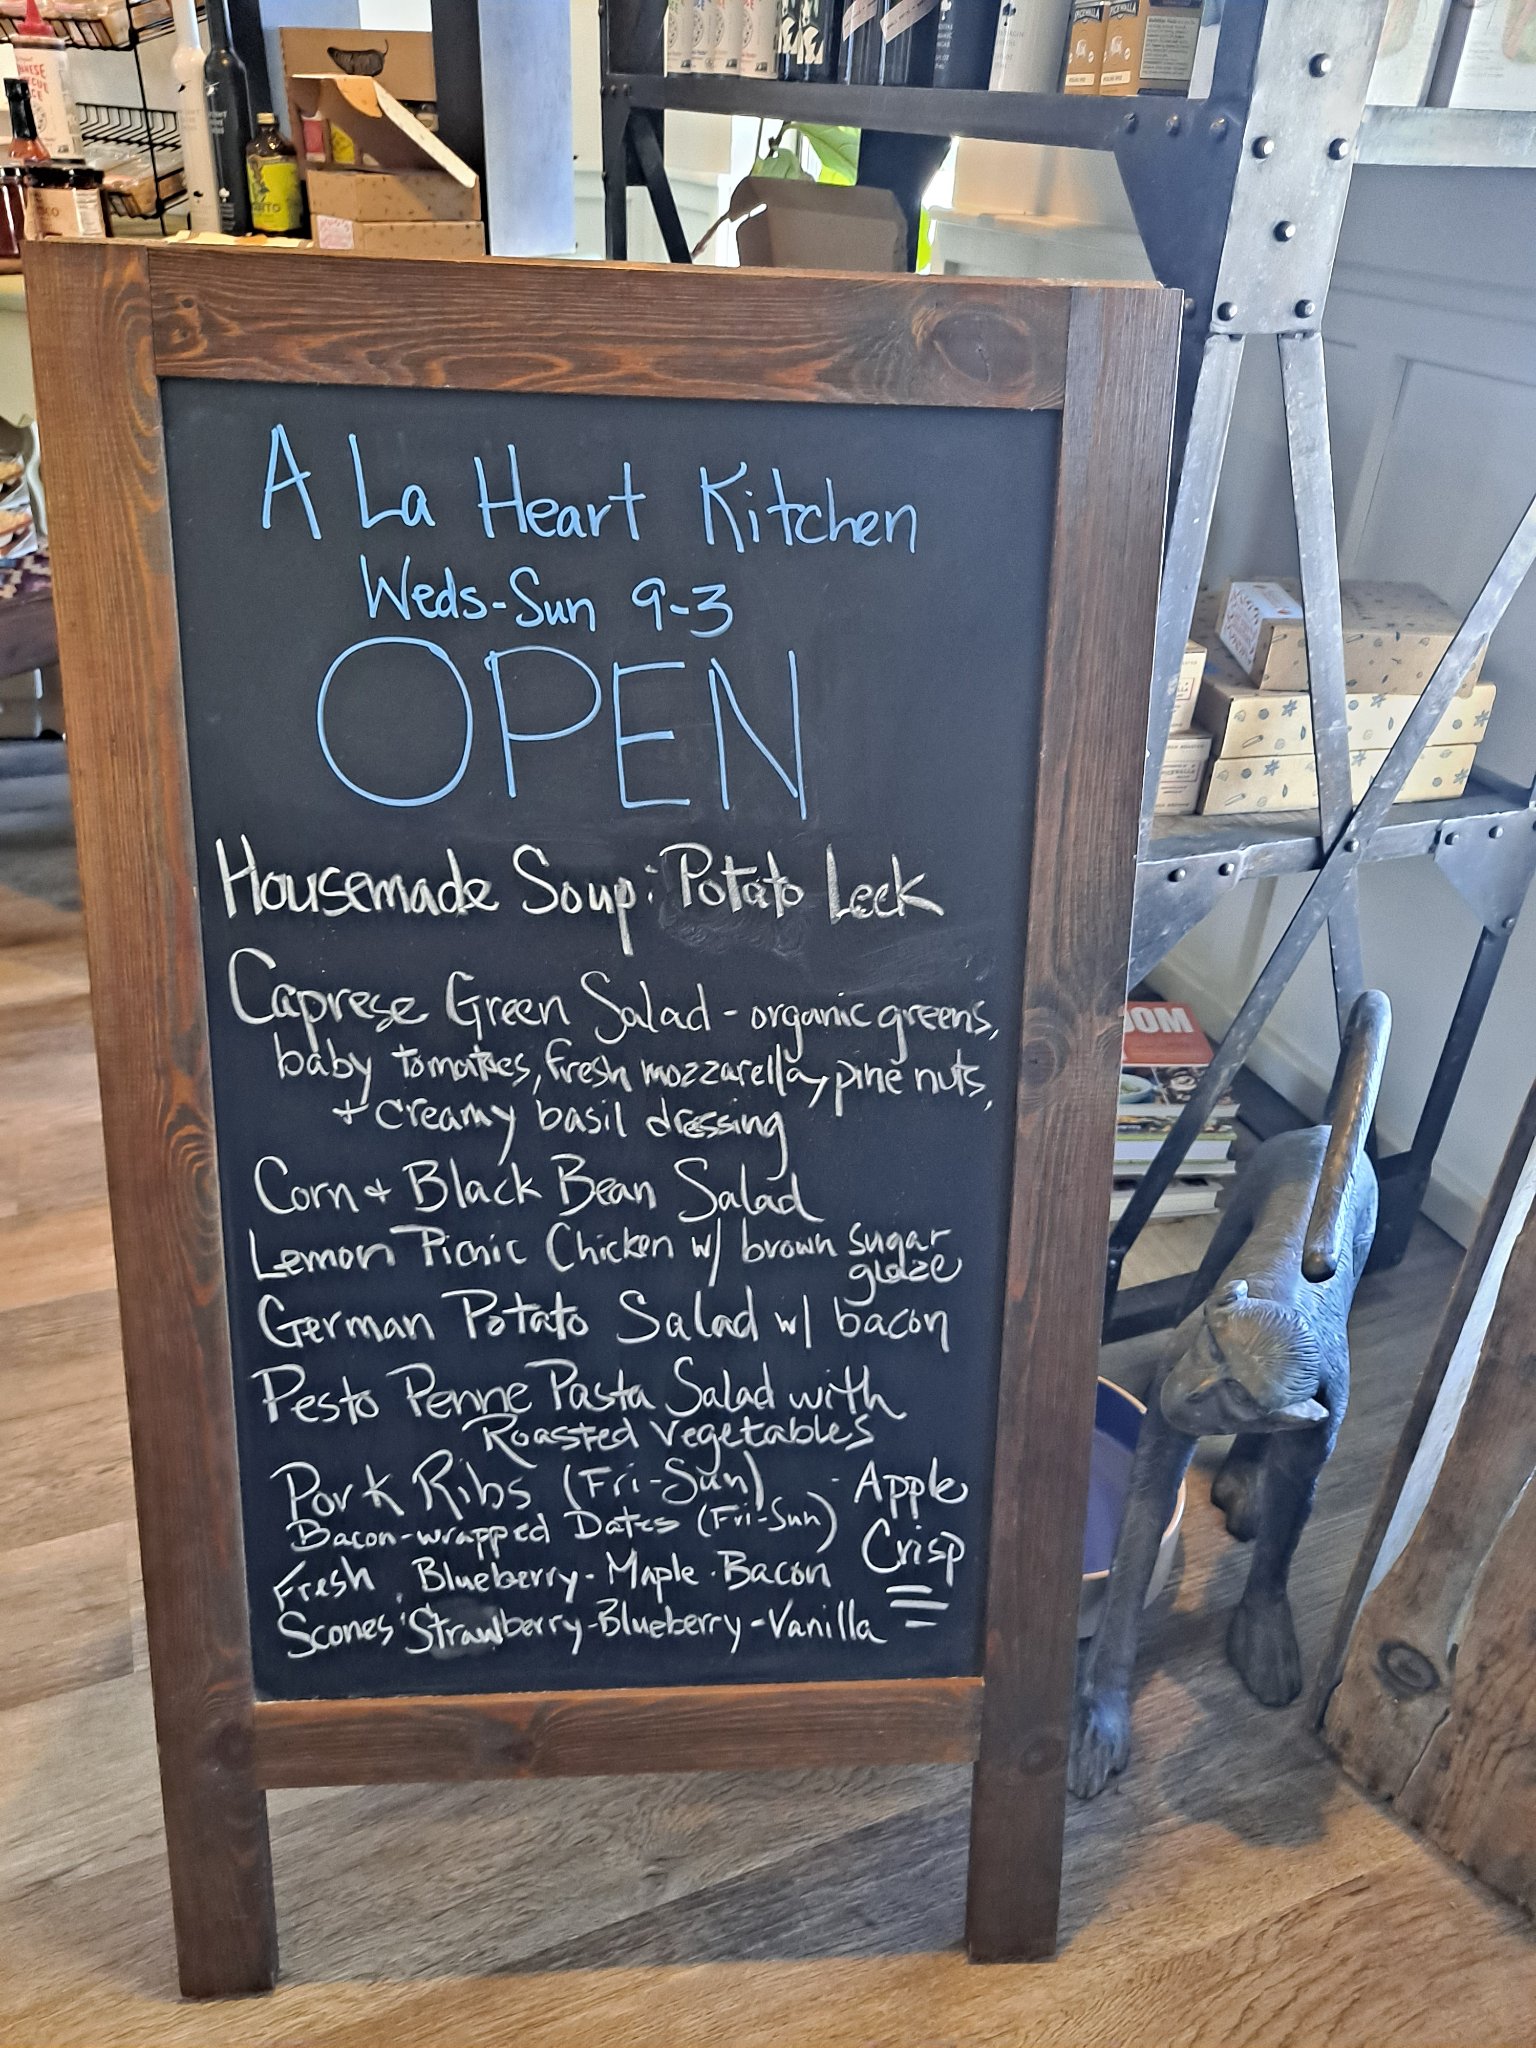 A La Heart Kitchen
Weds-Sun 9-3
OPEN
Housemade Soup: Potato Leek
Caprese Green Salad - organic greens,
baby tomatoes, fresh mozzarella, pine nuts,
+ creamy basil dressing
Corn + Black Bean Salad
Lemon Picnic Chicken w/ brown sugar
glaze
German Potato Salad w/ bacon
Pesto Penne Pasta Salad with
Roasted Vegetables
Pork Ribs (Fri-Sun)
Bacon-wrapped Dates (Fri-Sun)
- Apple
Crisp
Fresh Blueberry - Maple - Bacon
Scones: Strawberry-Blueberry-Vanilla